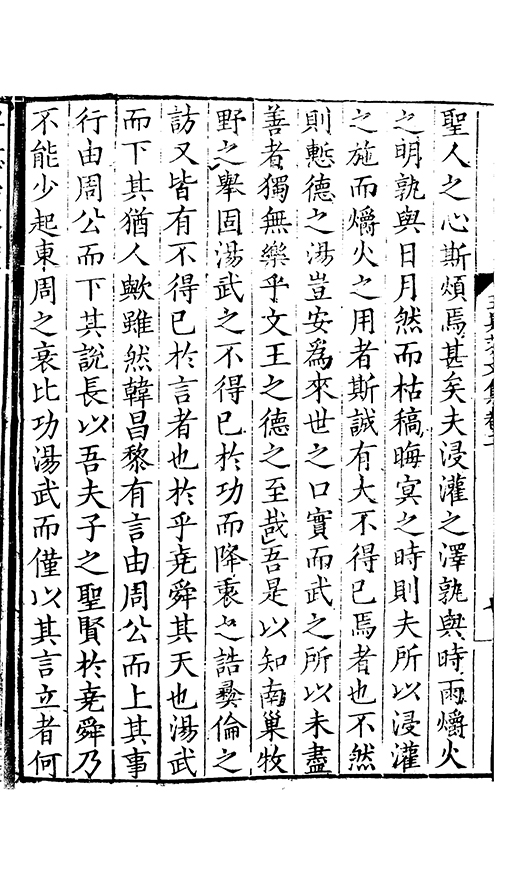 聖人之心斯煩焉甚矣夫浸灌之澤孰與時雨爝火
之明孰與日月然而枯稿晦㝠之時則夫所以浸灌
之施而爝火之用者斯誠有大不得已焉者也不然
則慙德之湯豈安爲來世之口實而武之所以未盡
善者獨無樂乎文王之德之至哉吾是以知南巢牧
野之舉固湯武之不得已於功而降衷之誥彛倫之
訪又皆有不得已於言者也於乎堯舜其天也湯武
而下其猶人歟雖然韓昌黎有言由周公而上其事
行由周公而下其說長以吾夫子之聖賢於堯舜乃
不能少起東周之衰比功湯武而僅以其言立者何